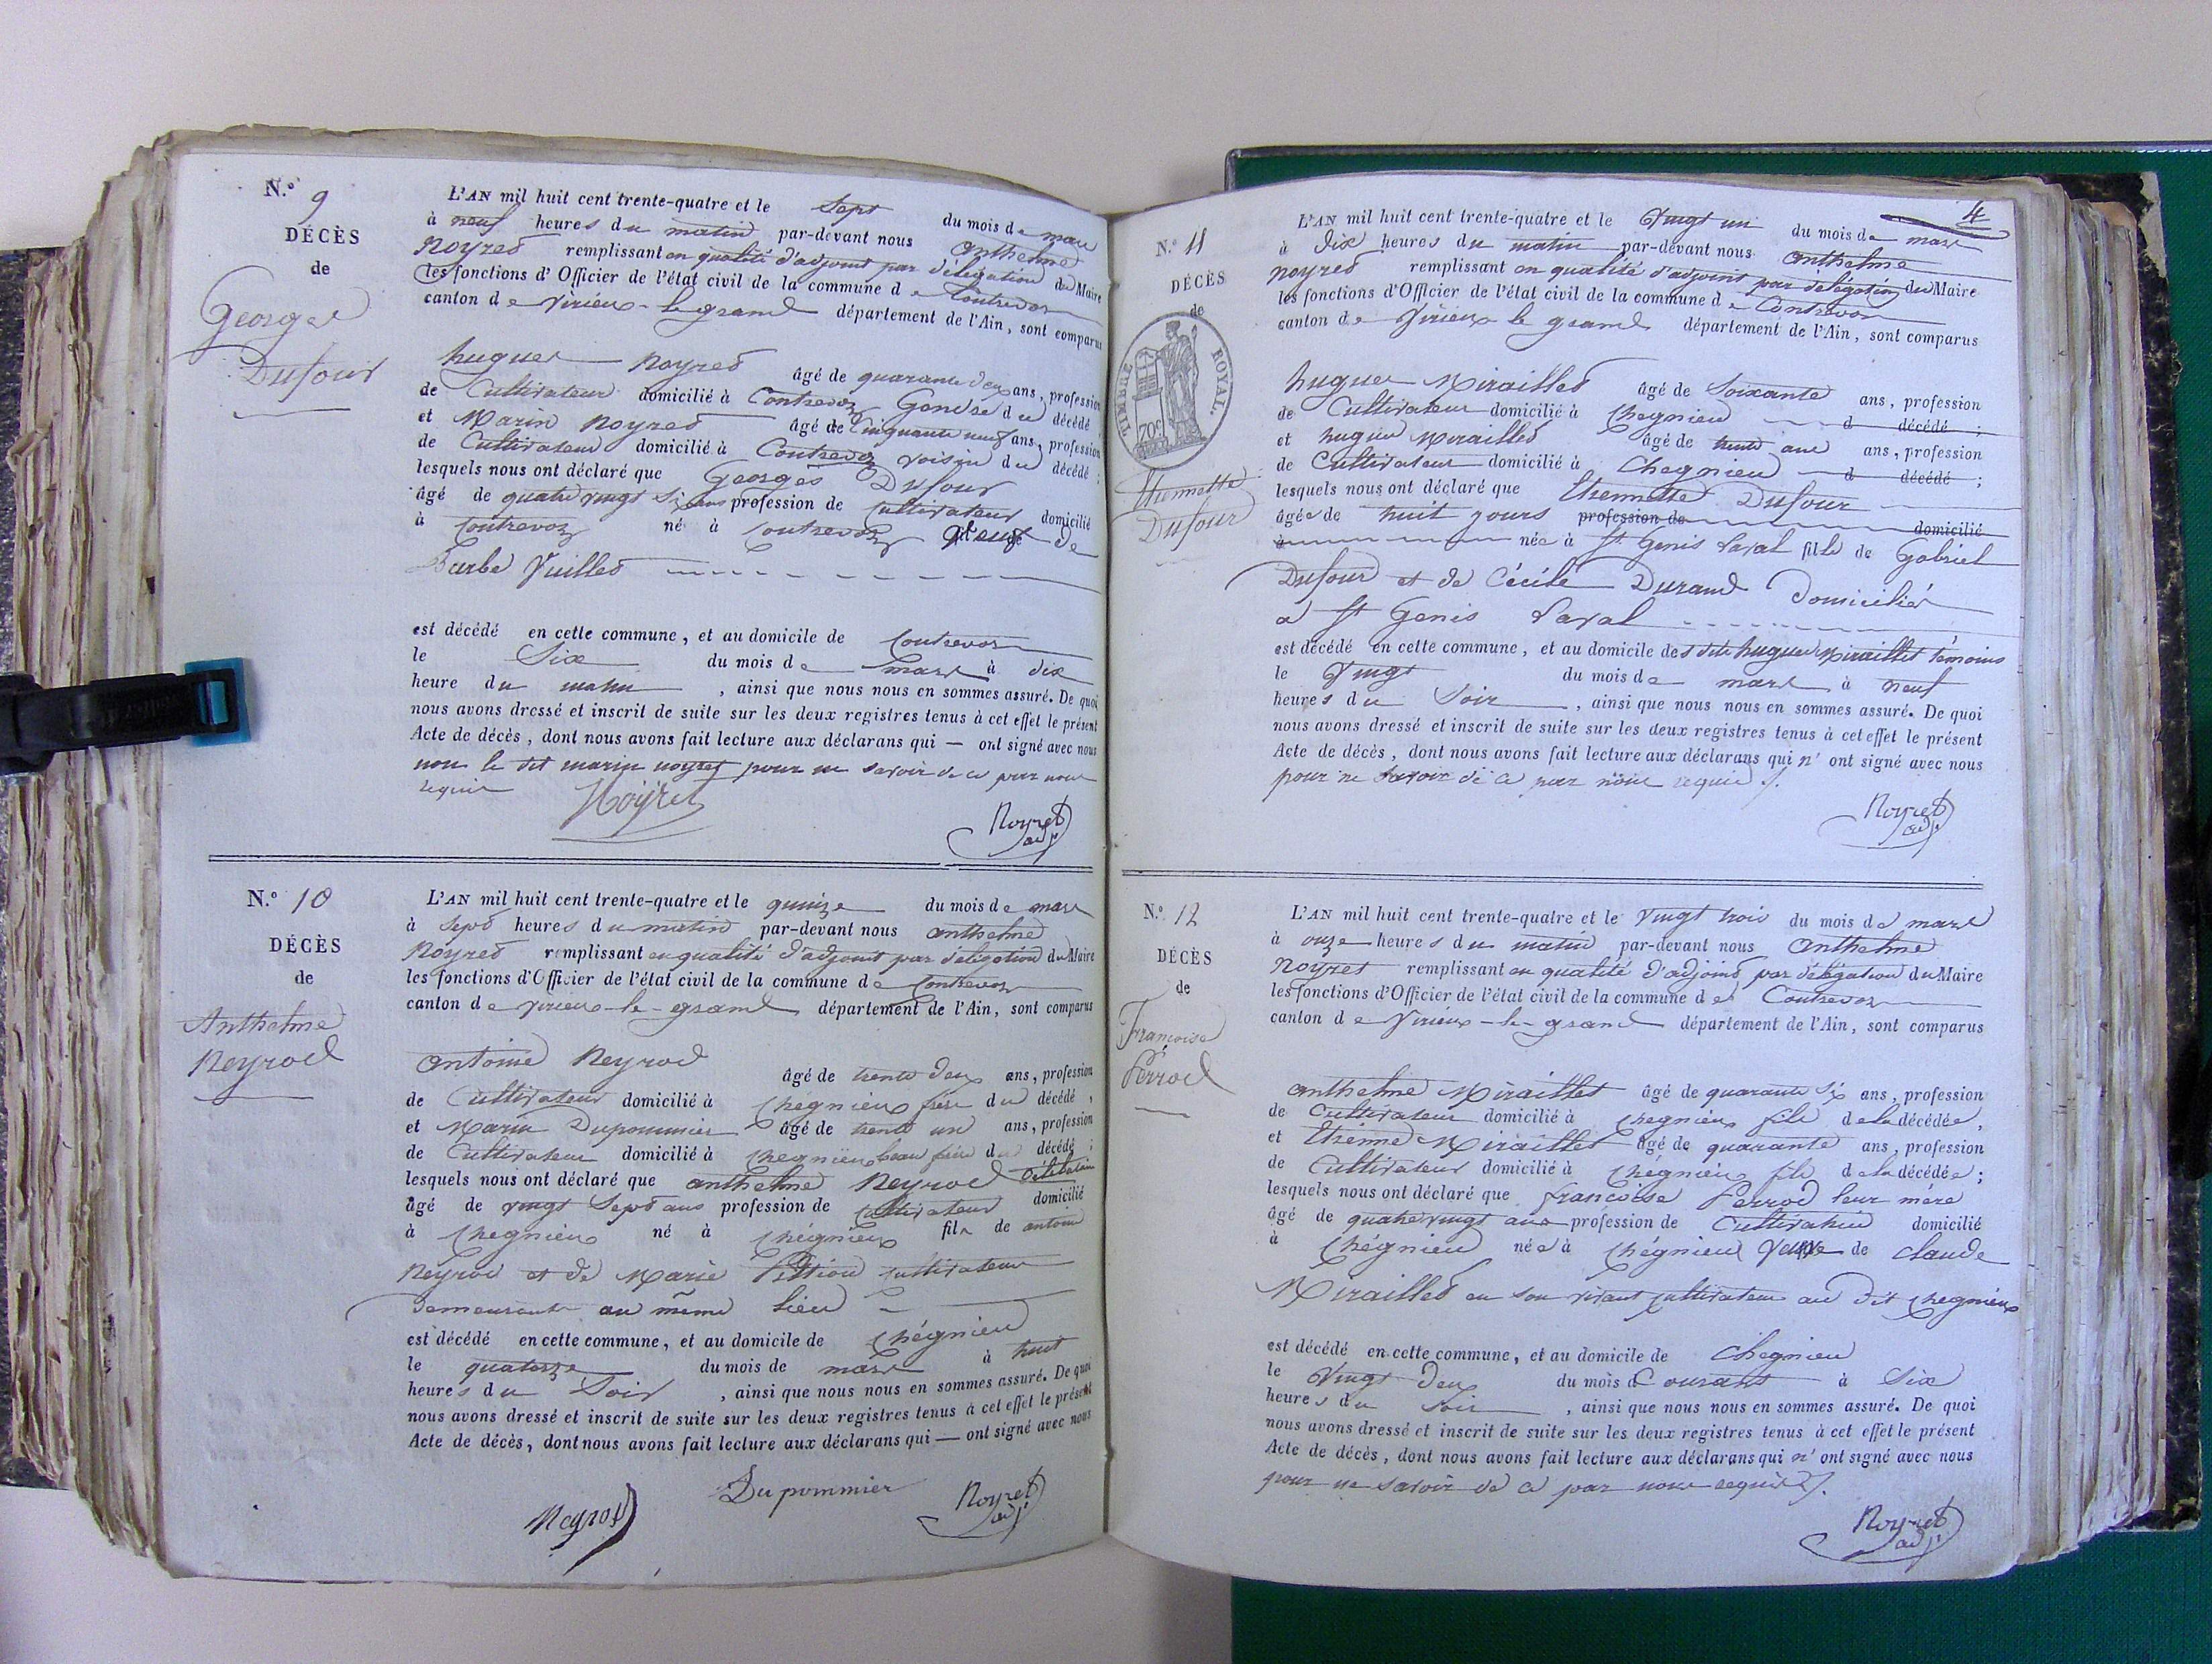 N.° 9
DÉCÈS
de
Georges
Dufour
L'AN mil huit cent trente-quatre et le Sept du mois de mars
à neuf heures du matin par-devant nous Anthelme
Noyret remplissant en qualité d'adjoint par délégation du Maire
les fonctions d'Officier de l'état civil de la commune de Contrevoz
canton de Virieux-le-grand département de l'Ain, sont comparus
hugues Noyret âgé de quarante deux ans, profession
de Cultivateur domicilié à Contrevoz Gendre du décédé,
et Marin Noyret âgé de Cinquante neuf ans, profession
de Cultivateur domicilié à Contrevoz voisin du décédé;
lesquels nous ont déclaré que Georges Dufour
âgé de quatre vingt Six ans profession de Cultivateur domicilié
à Contrevoz né à Contrevoz veuf de
Barbe Vuillet
est décédé en cette commune, et au domicile de Contrevoz
le Six du mois de mars à dix
heure du matin, ainsi que nous nous en sommes assuré. De quoi
nous avons dressé et inscrit de suite sur les deux registres tenus à cet effet le présent
Acte de décès, dont nous avons fait lecture aux déclarans qui — ont signé avec nous
non le dit marin noyret pour ne savoir de ce par nous
requis
Noyret
Noyret
adj.
N.° 10
DÉCÈS
de
Anthelme
Neyrod
L'AN mil huit cent trente-quatre et le quinze du mois de mars
à sept heures du matin par-devant nous anthelme
Noyret remplissant en qualité d'adjoint par délégation du Maire
les fonctions d'Officier de l'état civil de la commune de Contrevoz
canton de Virieux-le-grand département de l'Ain, sont comparus
antoine Neyrod âgé de trente deux ans, profession
de Cultivateur domicilié à Chégnieux frère du décédé,
et Marin Dupommier âgé de trente un ans, profession
de Cultivateur domicilié à Chegnieux beau frère du décédé;
lesquels nous ont déclaré que anthelme Neyrod Célibataire
âgé de vingt Sept ans profession de Cultivateur domicilié
à Chegnieux né à Chégnieux fils de antoine
Neyrod et de Marie Pittion Cultivateurs
demeurants au même Lieu
est décédé en cette commune, et au domicile de Chégnieu
le quatorze du mois de mars à huit
heures du Soir, ainsi que nous nous en sommes assuré. De quoi
nous avons dressé et inscrit de suite sur les deux registres tenus à cet effet le présent
Acte de décès, dont nous avons fait lecture aux déclarans qui — ont signé avec nous
Neyrod
Dupommier
Noyret
adj.
4
N.° 11
DÉCÈS
de
TIMBRE ROYAL.
70c
Etiennette
Dufour
L'AN mil huit cent trente-quatre et le Vingt un du mois de mars
à Dix heures du matin par-devant nous Anthelme
Noyret remplissant en qualité d'adjoint par délégation du Maire
les fonctions d'Officier de l'état civil de la commune de Contrevoz
canton de Virieux le grand département de l'Ain, sont comparus
hugues Miraillet âgé de Soixante ans, profession
de Cultivateur domicilié à Chegnieu d décédé;
et hugues Miraillet âgé de trente ans ans, profession
de Cultivateur domicilié à Chegnieu d décédé;
lesquels nous ont déclaré que Etiennette Dufour
âgée de huit jours profession de domicilié
à née à St Genis Laval fille de Gabriel
Dufour et de Cécile Durand Domiciliés
a St Genis Laval
est décédé en cette commune, et au domicile des dits hugues Miraillet témoins
le Vingt du mois de mars à neuf
heures du Soir, ainsi que nous nous en sommes assuré. De quoi
nous avons dressé et inscrit de suite sur les deux registres tenus à cet effet le présent
Acte de décès, dont nous avons fait lecture aux déclarans qui n'ont signé avec nous
pour ne savoir de ce par nous requis
Noyret
adj.
N.° 12
DÉCÈS
de
Françoise
Perrod
L'AN mil huit cent trente-quatre et le Vingt trois du mois de mars
à onze heures du matin par-devant nous Anthelme
Noyret remplissant en qualité d'adjoint par délégation du Maire
les fonctions d'Officier de l'état civil de la commune de Contrevoz
canton de Virieux-le-grand département de l'Ain, sont comparus
anthelme Miraillet âgé de quarante Six ans, profession
de Cultivateur domicilié à Chegnieu fils de la décédée,
et Etienne Miraillet âgé de quarante ans, profession
de Cultivateur domicilié à Chégnieu fils de la décédée;
lesquels nous ont déclaré que françoise Perrod leur mère
âgé de quatre vingt ans profession de Cultivatrice domicilié
à Chégnieu née à Chégnieu Veuve de Claude
Miraillet en son vivant Cultivateur au dit Chegnieux
est décédé en cette commune, et au domicile de Chegnieu
le Vingt Deux du mois Courant à Six
heures du Soir, ainsi que nous nous en sommes assuré. De quoi
nous avons dressé et inscrit de suite sur les deux registres tenus à cet effet le présent
Acte de décès, dont nous avons fait lecture aux déclarans qui n'ont signé avec nous
pour ne savoir de ce par nous requis
Noyret
adj.